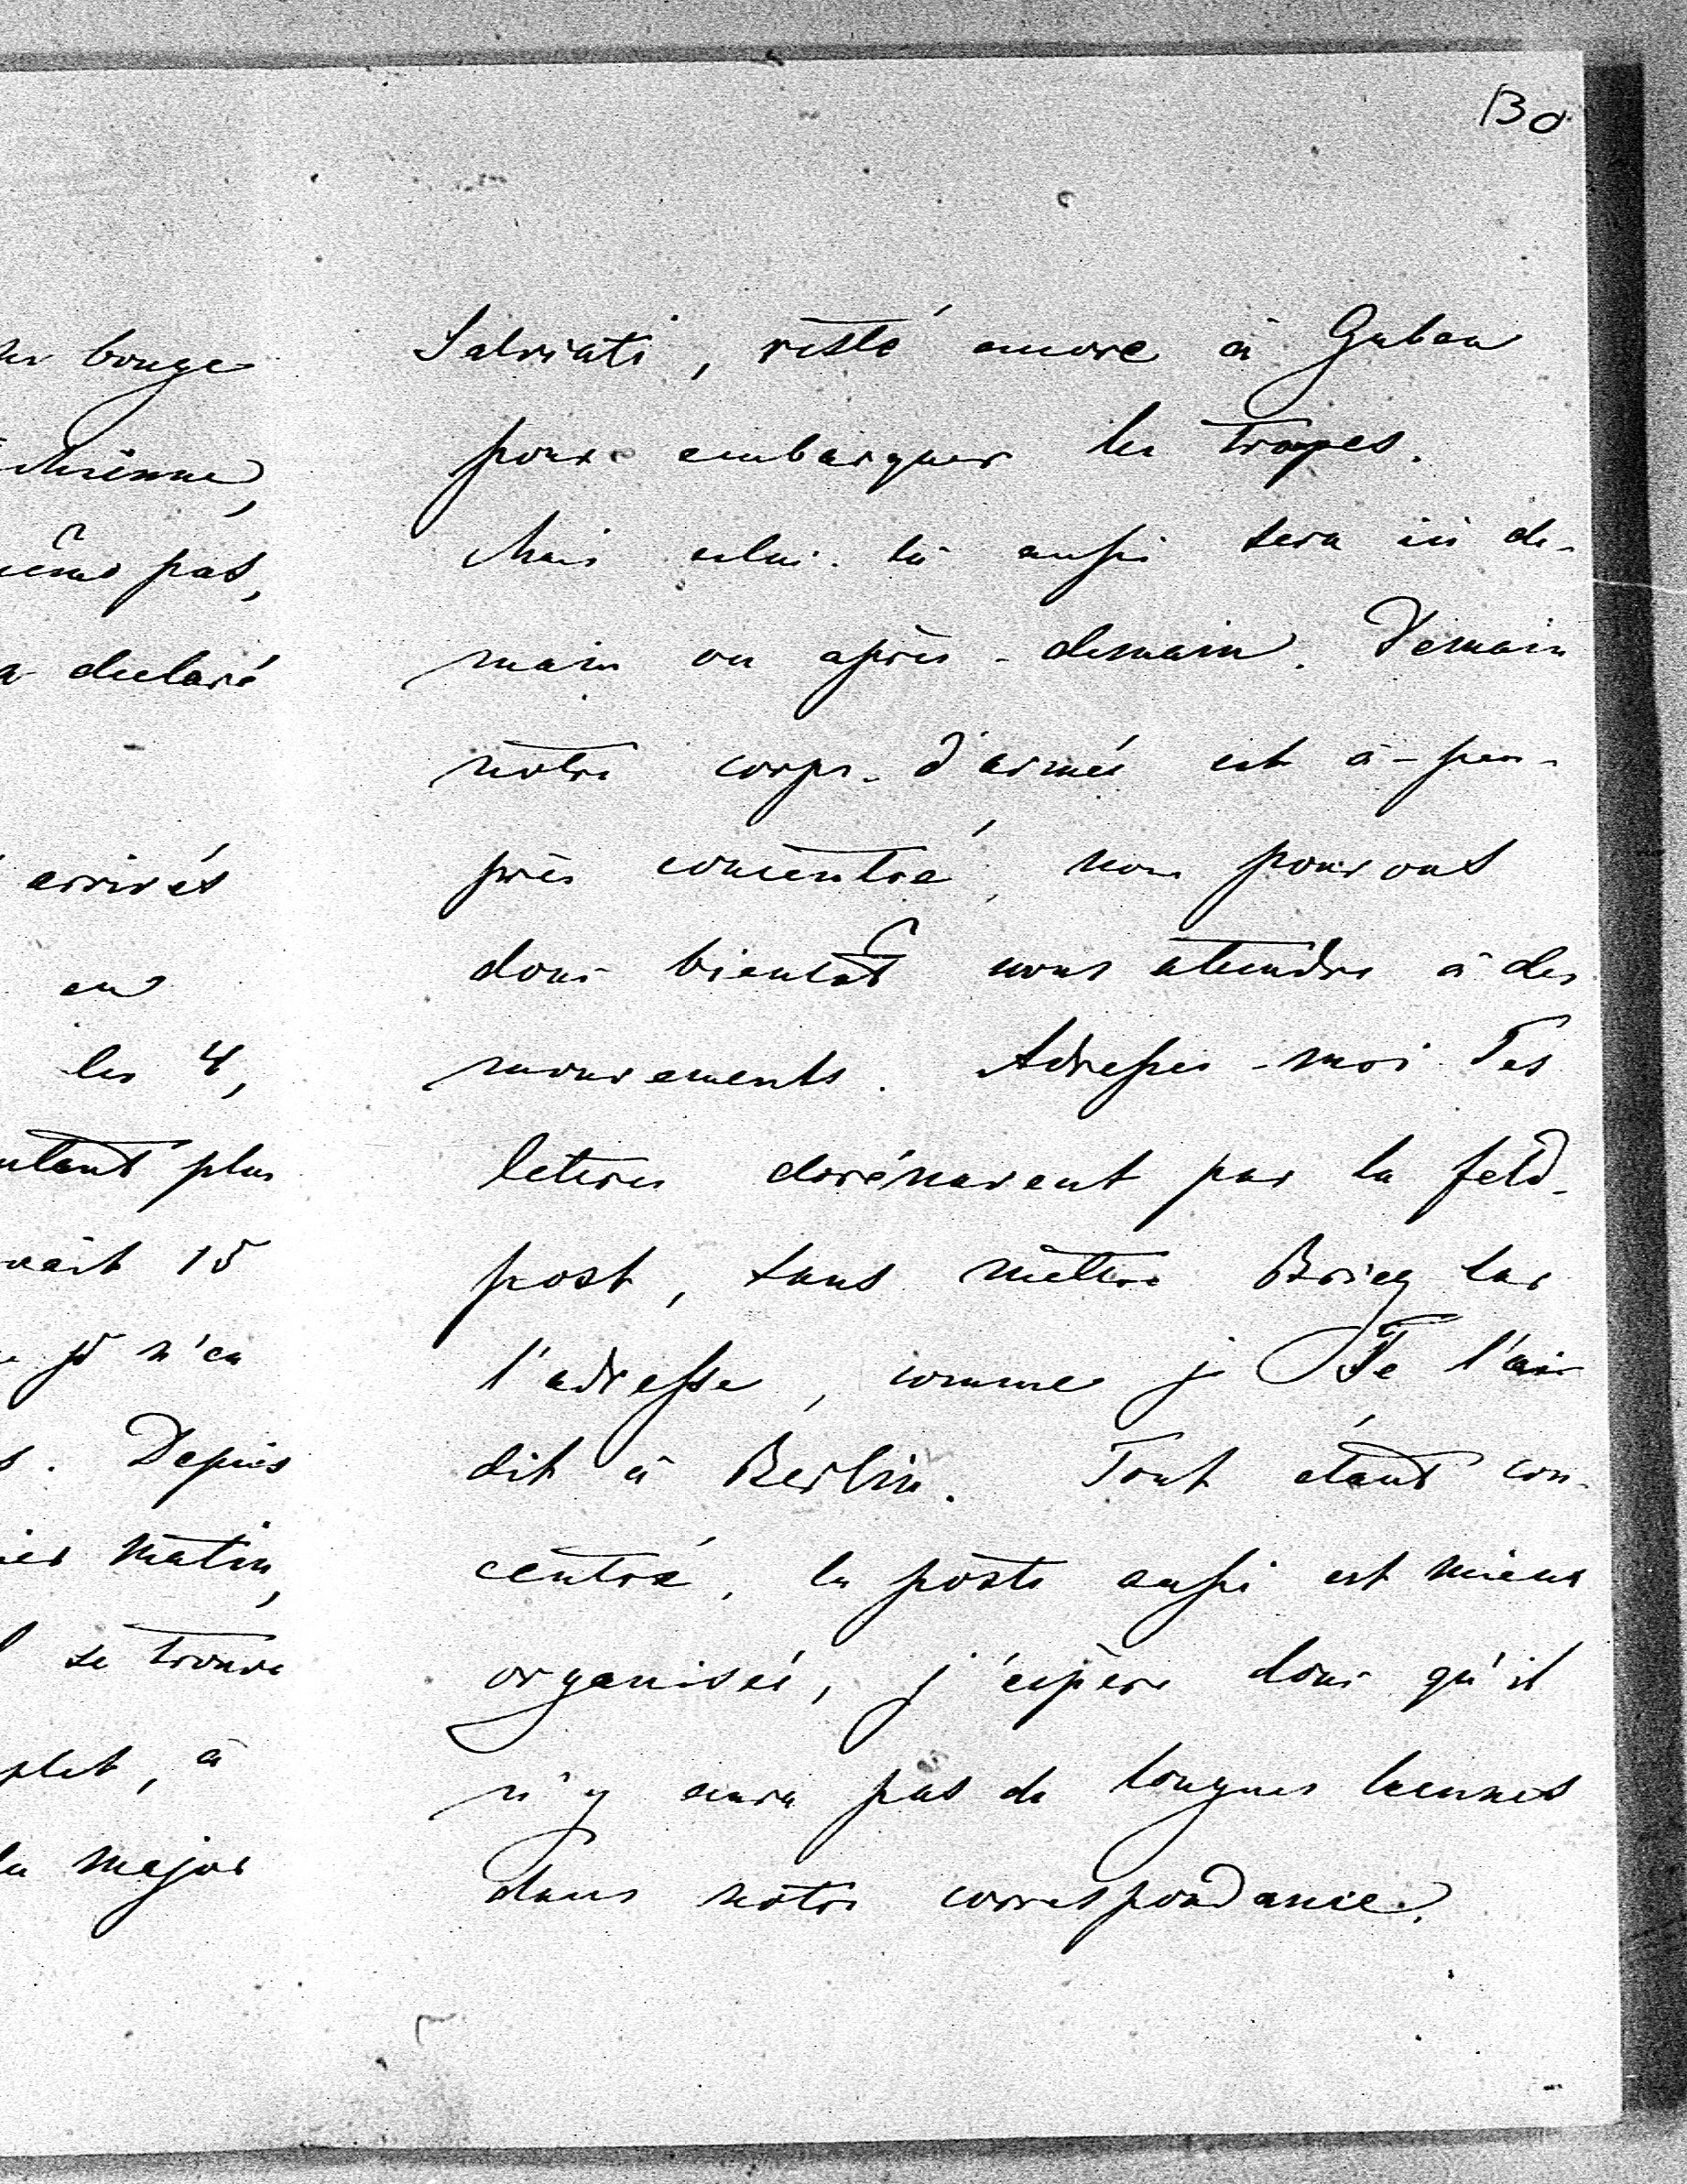 130
Salviati, resté encore à Guben
pour embarquer les tropes.
Mais celui-là aussi sera ici de-
main ou après-demain. Demain
notre corps-d'armée est à-peu-
près concentré, nous pouvons
donc bientôt nous atendre à des
mouvements. Adresses-moi Tes
lettres dorénavent par la feld-
post, sans mettre Brieg sur
l'adresse, comme je Te l'ai
dit à Berlin. Tout étant con-
centré, la poste aussi est mieux
organisée, j'espère donc qu'il
n'y aura pas de longues lacunes
dans notre correspondance.
bouge
pas,
declaré
arrivés
en
les 4,
plus
15
n'en
Depuis
matin,
se trouve
à
major